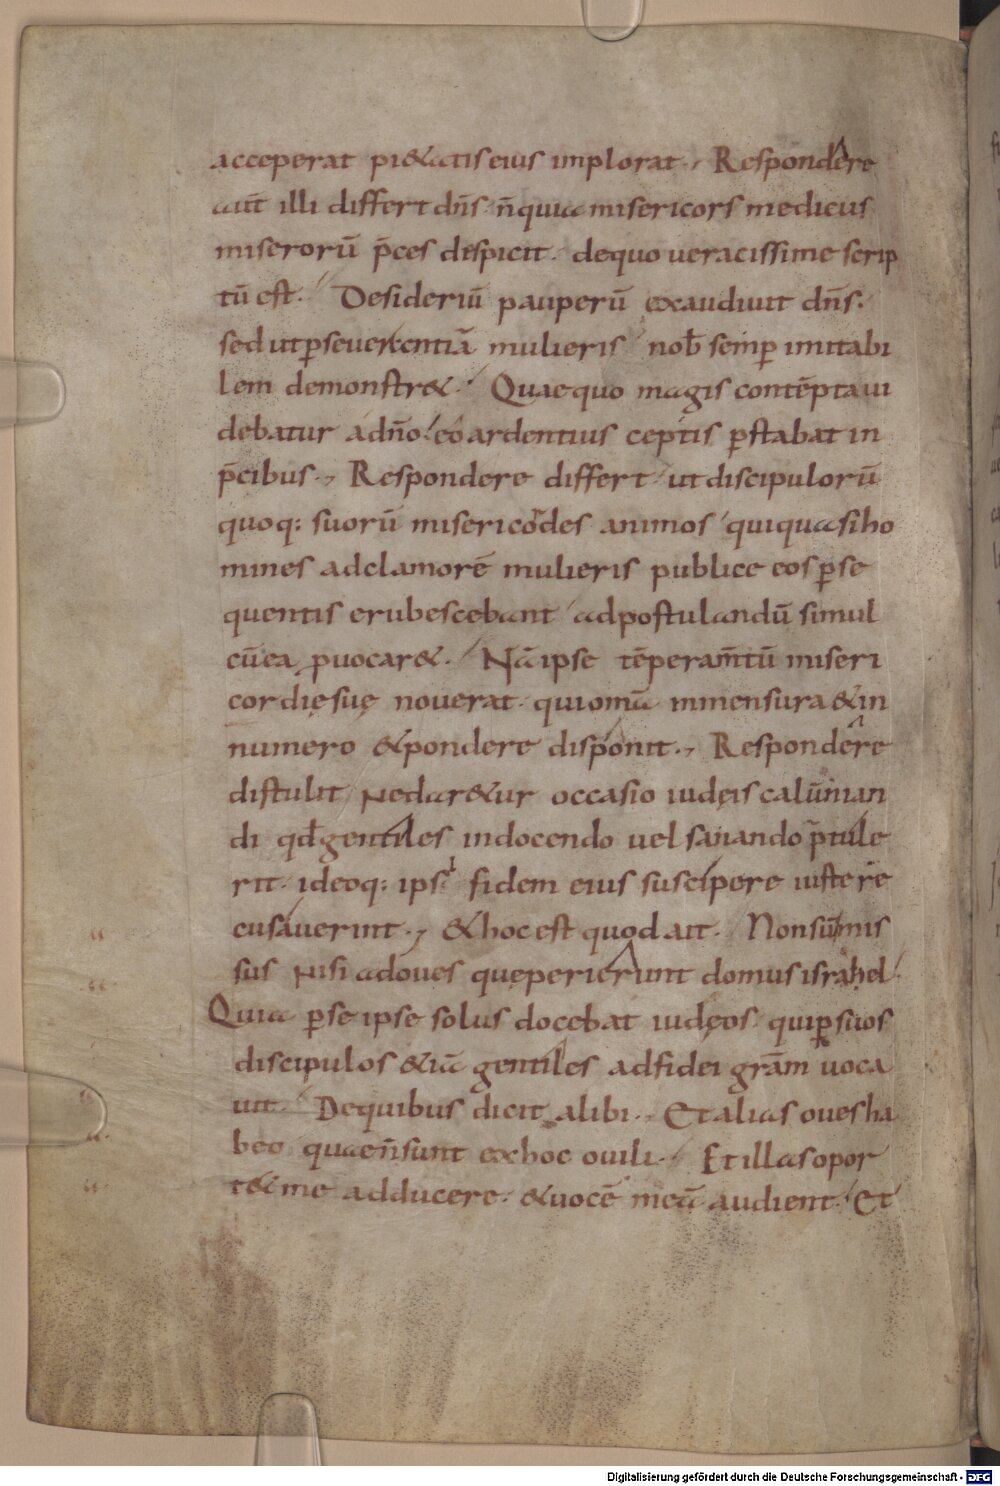 acceperat pi&atis eius implorat., Respondere
aut̄ illi differt dn̄s. n̄ quia misericors medicus
miserorū p̄ces dispicit. dequo veracissime scrip
tū est. Desideriū pauperū exaudiuit dn̄s.
sed ut ꝑseuerentiā mulieris nob̄ semꝑ imitabi
lem demonstr&. Quae quo magis contēpta ui
debatur a dn̄o. eo ardentius ceptis ꝑstabat in
p̄cibus., Respondere differt. ut discipulorū
quoq: suorū misericordes animos quiquasi ho
mines adclamorē mulieris publice eos ꝑse
quentis erubescebant ad postulandū simul
cū ea ꝓuocar&. Nā ipse tēperam̄tū miseri
cordię suę nouerat. qui omīa inmensura & in
numero & pondere disponit., Respondere
distulit Nedar&ur occasio iudęis calūnian
di qd̄ gentiles in docendo uel sanando p̄tule
rit. ideoq: ipsi fidem eius suscipere iuste re
cusauerint., & hoc est quod ait. Non sum mis
sus Nisi ad oues quę perierunt domus israhel.
Quia ꝑse ipse solus docebat iudęos. qui ꝑ suos
discipulos &iā gentiles adfidei grām uoca
uit. Dequibus dicit alibi., Et alias oues ha
beo quae n̄ sunt ex hoc ouili. Et illas opor
t& me adducere. & uocē meā audient. Et
Digitalisierung gefördert durch die Deutsche Forschungsgemeinschaft - DFG